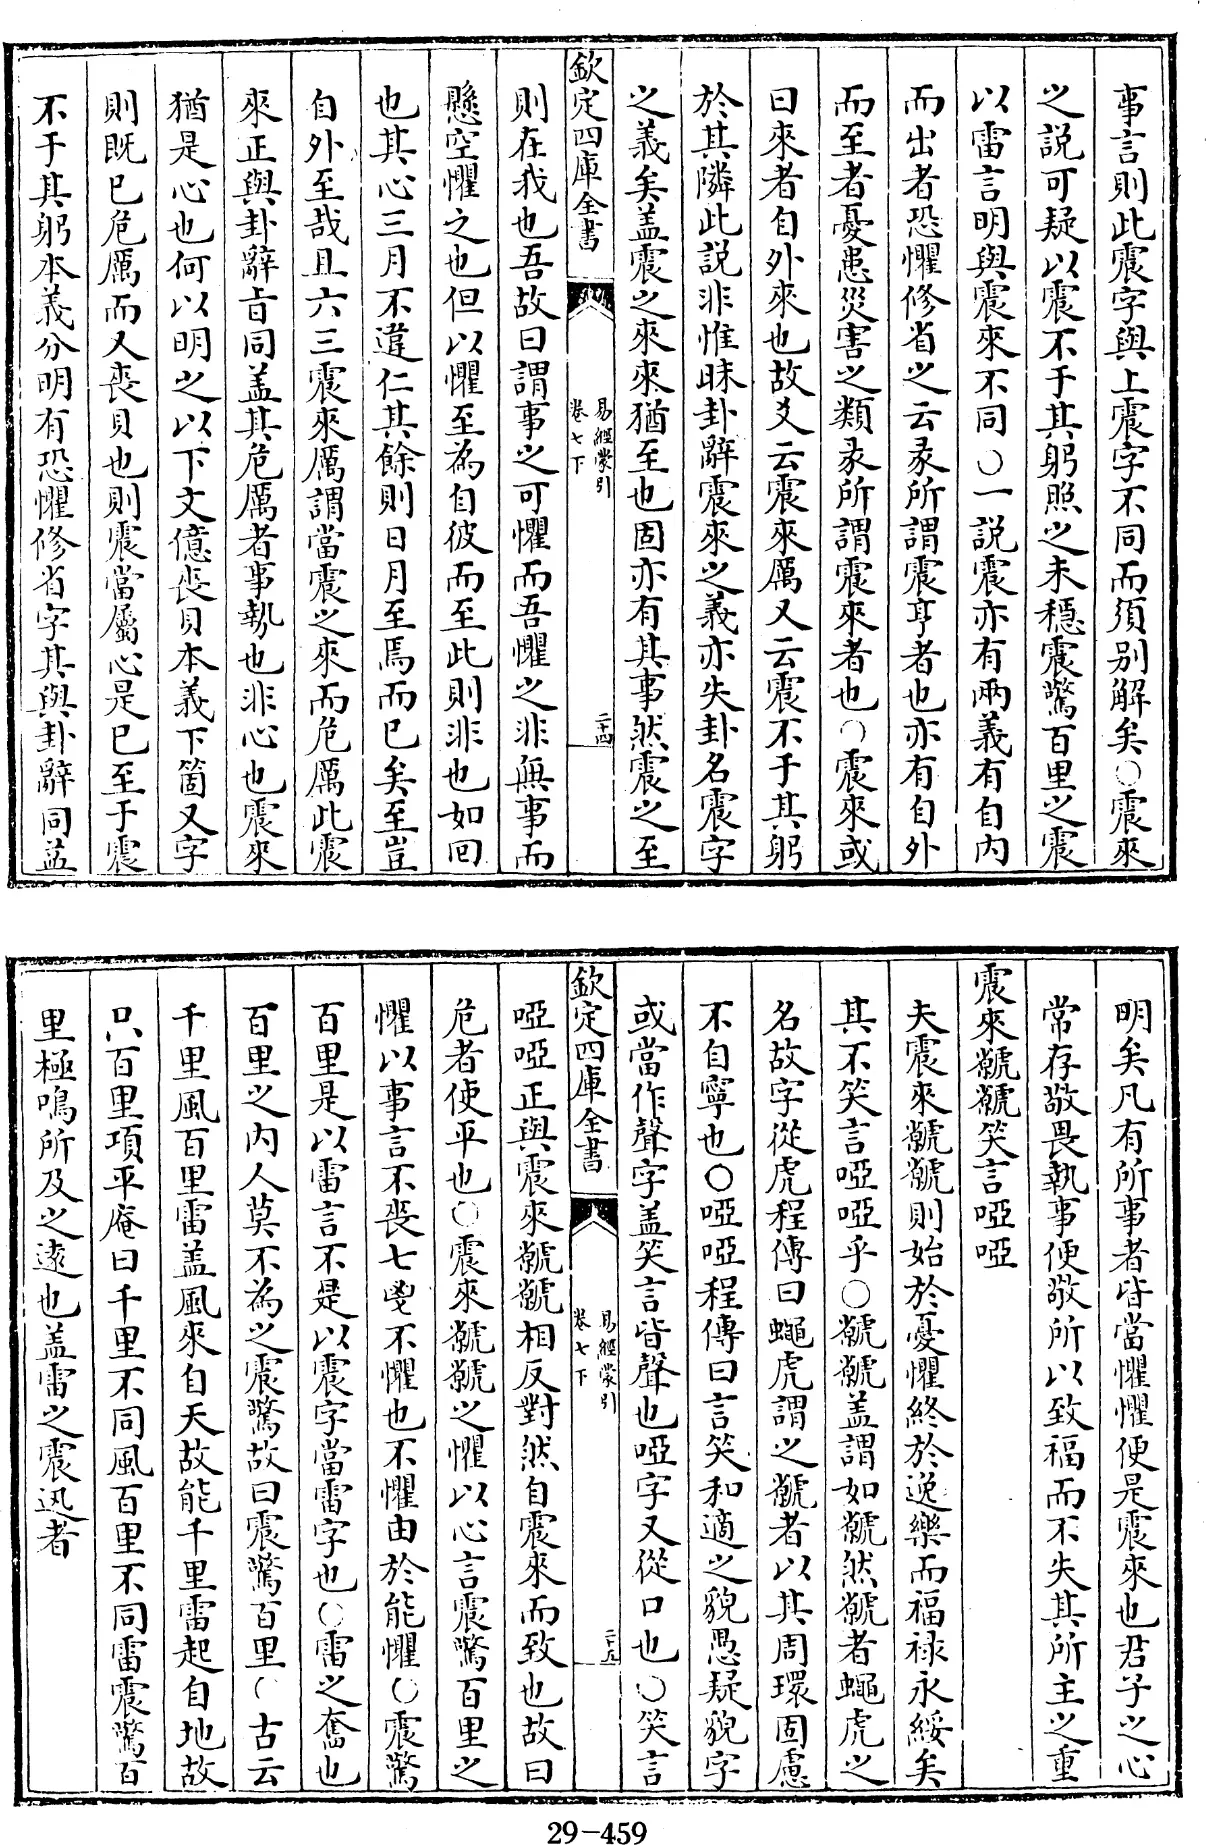 事言則此震字與上震字不同而須别解矣○震來
之説可疑以震不于其躬照之未穩震驚百里之震
以雷言明與震來不同○一説震亦有兩義有自内
而出者恐懼修省之云彖所謂震亨者也亦有自外
而至者憂患災害之類彖所謂震來者也○震來或
曰來者自外來也故爻云震來厲又云震不于其躬
於其隣此説非惟昧卦辭震來之義亦失卦名震字
之義矣盖震之來來猶至也固亦有其事然震之至
欽定四庫全書
易經蒙引
卷七下
二十四
則在我也吾故曰謂事之可懼而吾懼之非無事而
懸空懼之也但以懼至為自彼而至此則非也如回
也其心三月不違仁其餘則日月至焉而已矣至豈
自外至哉且六三震來厲謂當震之來而危厲此震
來正與卦辭㫖同盖其危厲者事勢也非心也震來
猶是心也何以明之以下文億喪貝本義下箇又字
則既已危厲而又喪貝也則震當屬心是已至于震
不于其躬本義分明有恐懼修省字其與卦辭同益
明矣凡有所事者皆當懼懼便是震來也君子之心
常存敬畏執事便敬所以致福而不失其所主之重
震來虩虩笑言啞啞
夫震來虩虩則始於憂懼終於逸樂而福祿永綏矣
其不笑言啞啞乎○虩虩盖謂如虩然虩者蠅虎之
名故字從虎程傳曰蠅虎謂之虩者以其周環固慮
不自寧也○啞啞程傳曰言笑和適之貌愚疑貌字
或當作聲字盖笑言皆聲也啞字又從口也○笑言
欽定四庫全書
易經蒙引
卷七下
二十五
啞啞正與震來虩虩相反對然自震來而致也故曰
危者使平也○震來虩虩之懼以心言震驚百里之
懼以事言不喪七鬯不懼也不懼由於能懼○震驚
百里是以雷言不是以震字當雷字也○雷之奮也
百里之内人莫不為之震驚故曰震驚百里○古云
千里風百里雷盖風來自天故能千里雷起自地故
只百里項平庵曰千里不同風百里不同雷震驚百
里極鳴所及之逺也盖雷之震迅者
29-459